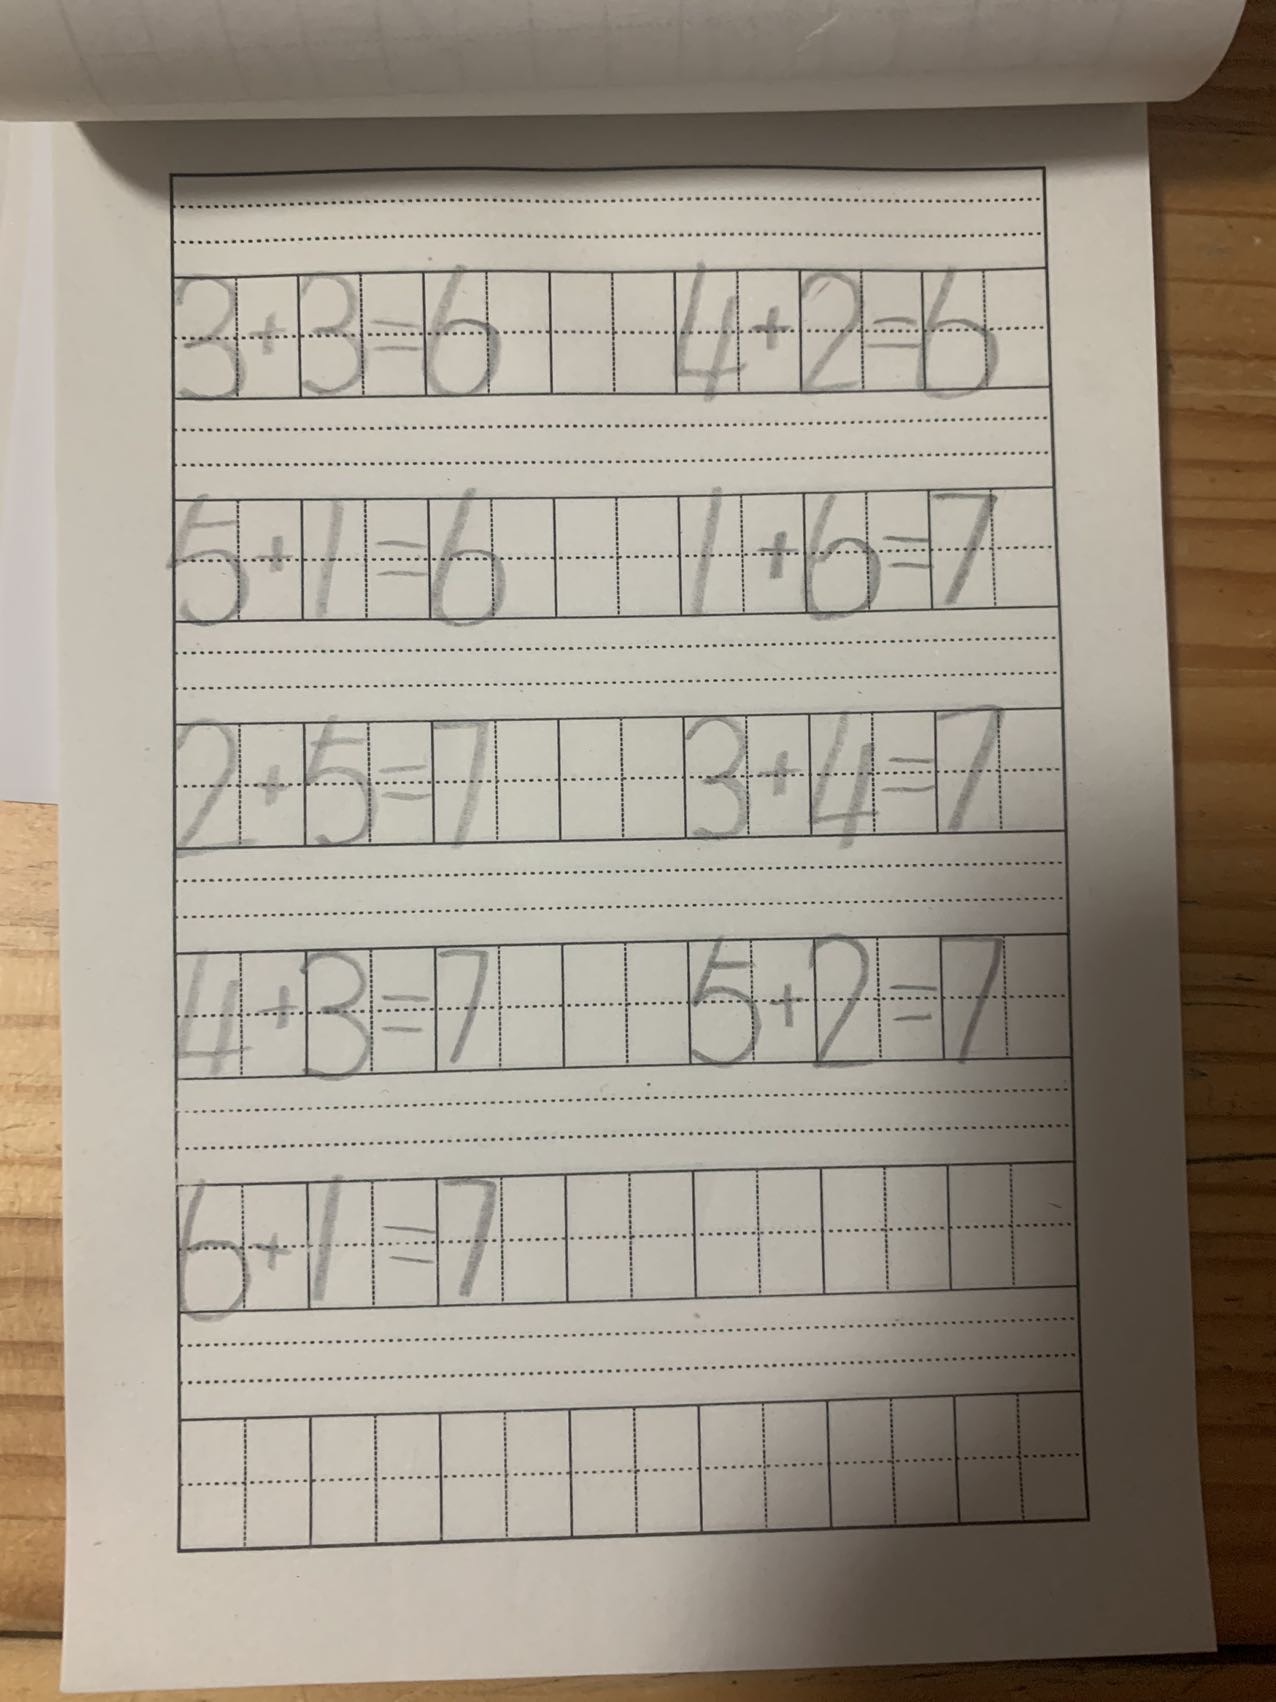 3+3=6 4+2=6
5+1=6 1+6=7
2+5=7 3+4=7
4+3=7 5+2=7
6+1=7